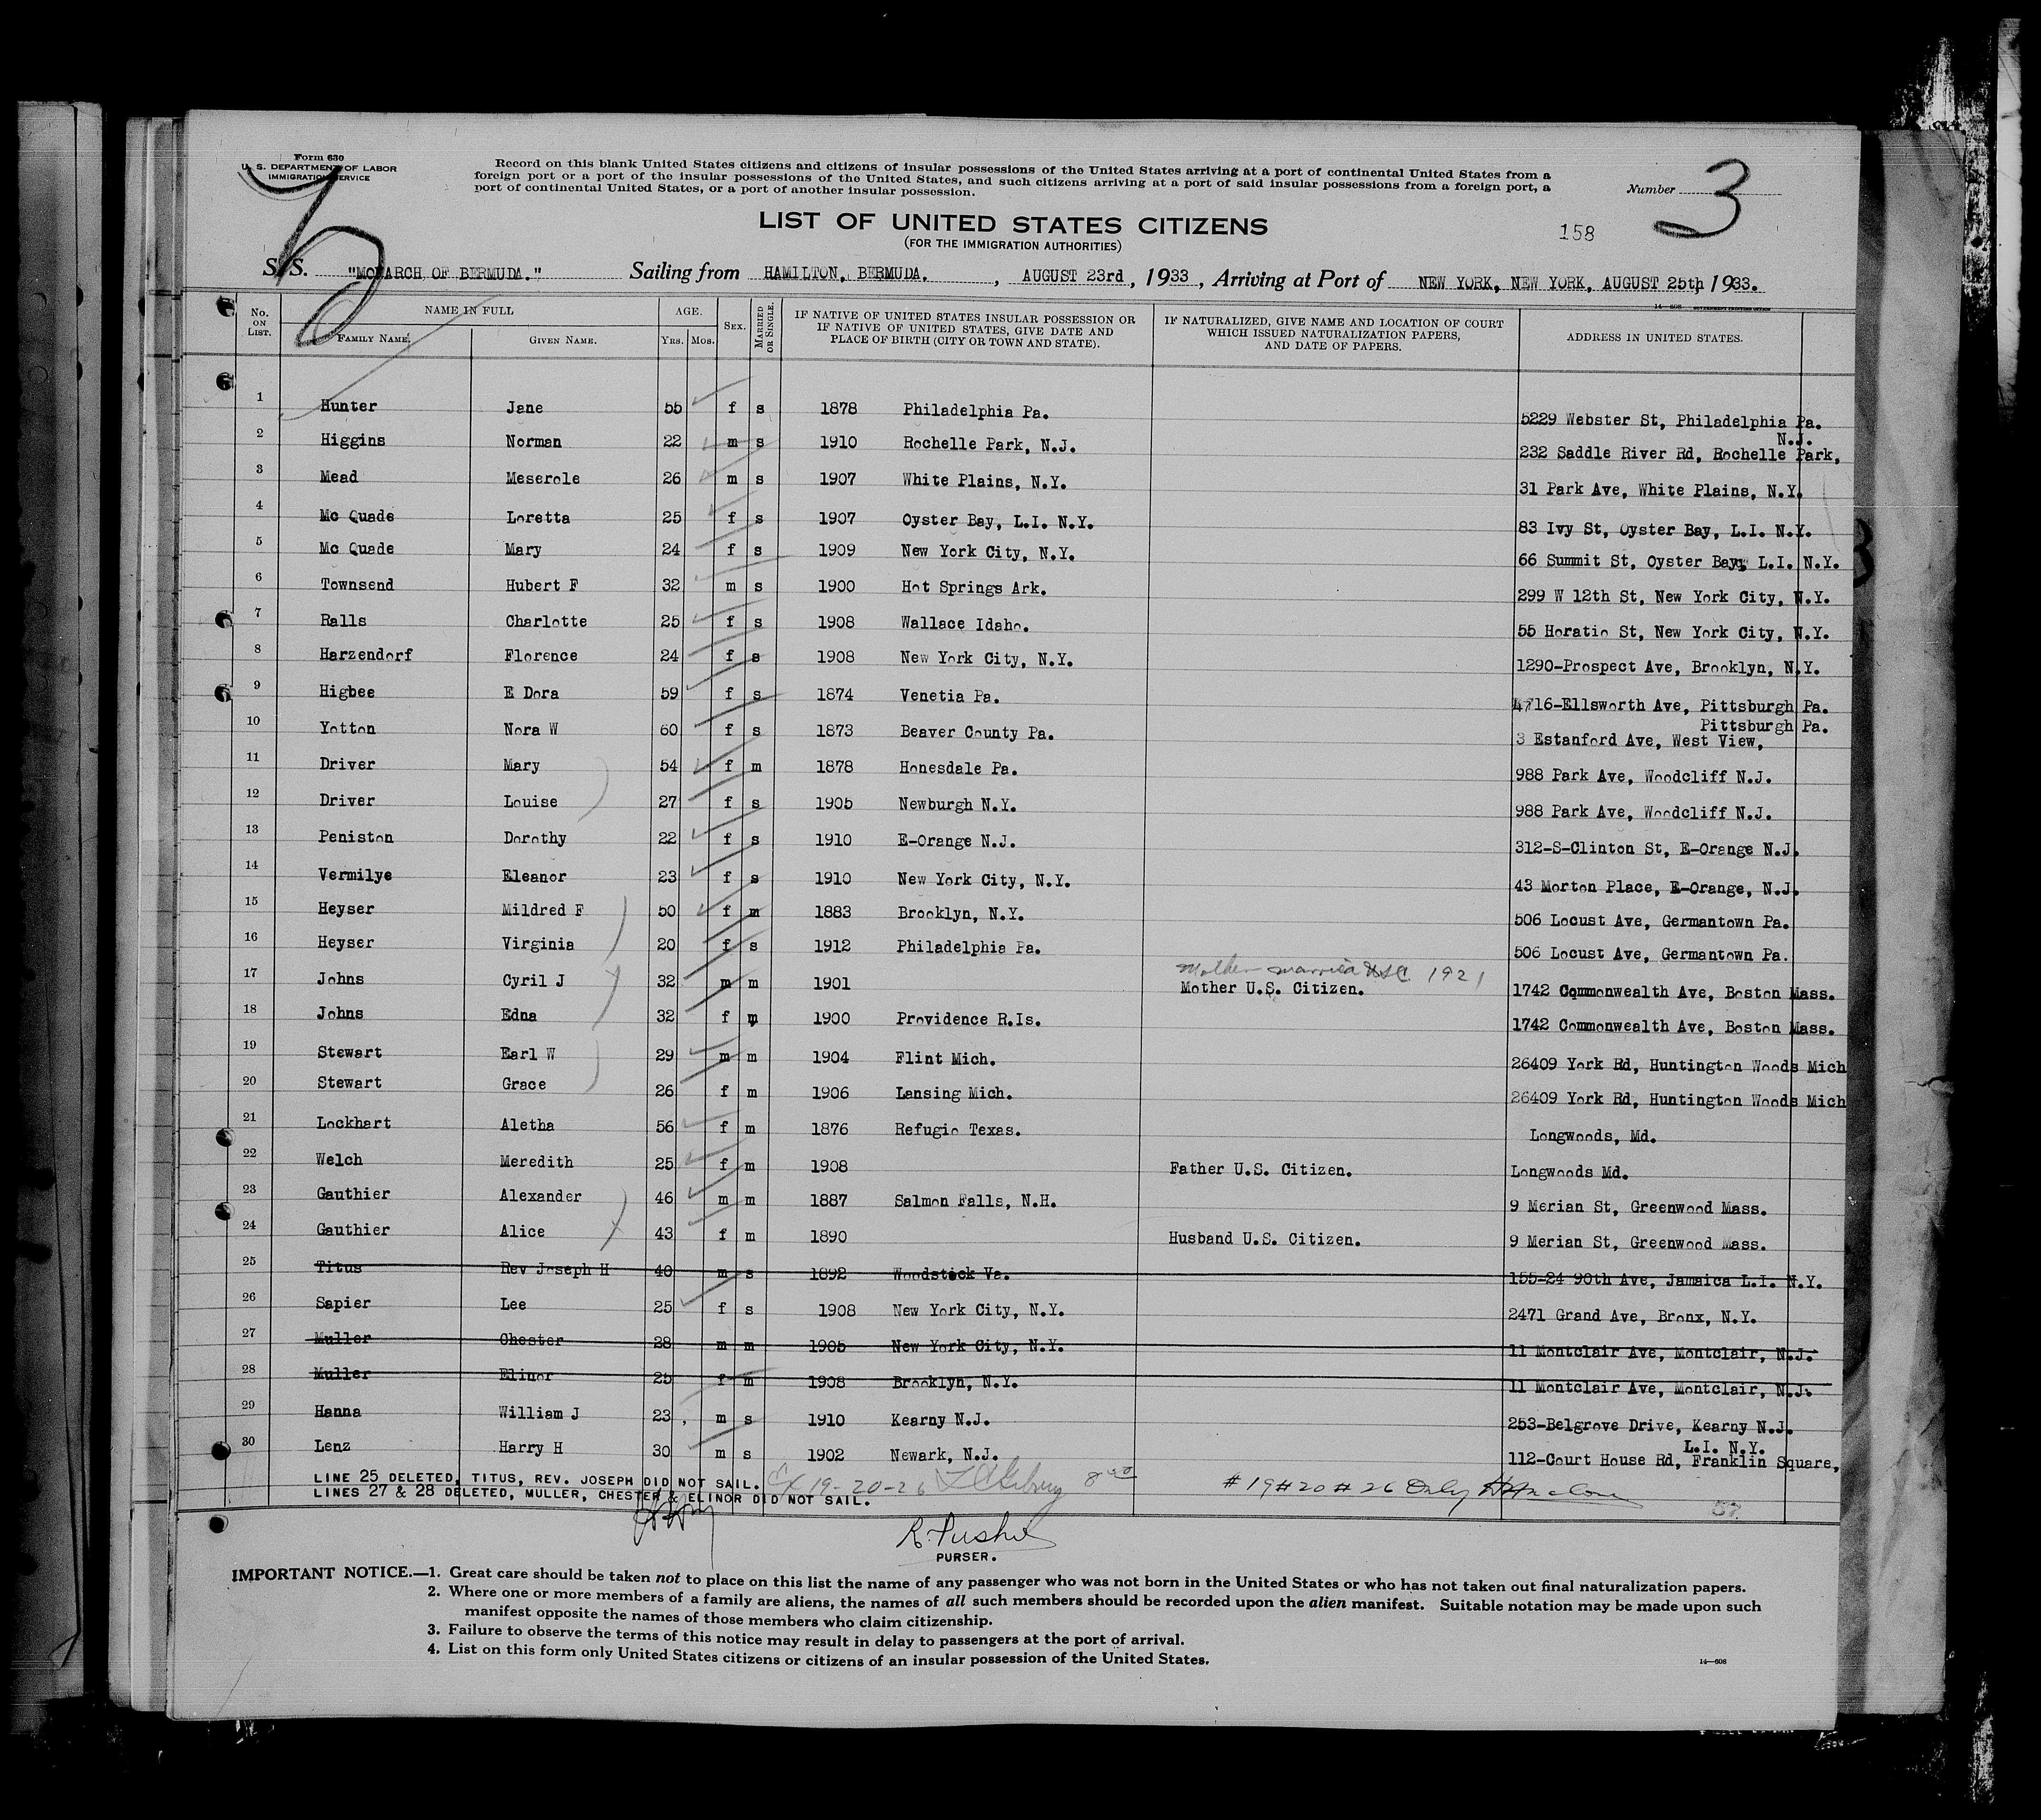 Form 630
U. S. DEPARTMENT OF LABOR
IMMIGRATION SERVICE
Record on this blank United States citizens and citizens of insular possessions of the United States arriving at a port of continental United States from a
foreign port or a port of the insular possessions of the United States, and such citizens arriving at a port of said insular possessions from a foreign port, a
port of continental United States, or a port of another insular possession.
Number 3
LIST OF UNITED STATES CITIZENS
(FOR THE IMMIGRATION AUTHORITIES)
158
S. S. "MONARCH OF BERMUDA." Sailing from HAMILTON, BERMUDA. , AUGUST 23rd , 1933 , Arriving at Port of NEW YORK, NEW YORK, AUGUST 25th, 1933.
14—608
No. ON LIST. NAME IN FULL FAMILY NAME. GIVEN NAME. AGE. YRS. MOS. SEX. MARRIED OR SINGLE. IF NATIVE OF UNITED STATES INSULAR POSSESSION OR IF NATIVE OF UNITED STATES, GIVE DATE AND PLACE OF BIRTH (CITY OR TOWN AND STATE). IF NATURALIZED, GIVE NAME AND LOCATION OF COURT WHICH ISSUED NATURALIZATION PAPERS, AND DATE OF PAPERS. ADDRESS IN UNITED STATES.
1 Hunter Jane 55 f s 1878 Philadelphia Pa. 5229 Webster St, Philadelphia Pa.
2 Higgins Norman 22 m s 1910 Rochelle Park, N.J. 232 Saddle River Rd, Rochelle Park, N.J.
3 Mead Meserole 26 m s 1907 White Plains, N.Y. 31 Park Ave, White Plains, N.Y.
4 Mc Quade Loretta 25 f s 1907 Oyster Bay, L.I. N.Y. 83 Ivy St, Oyster Bay, L.I. N.Y.
5 Mc Quade Mary 24 f s 1909 New York City, N.Y. 66 Summit St, Oyster Bay, L.I. N.Y.
6 Townsend Hubert F 32 m s 1900 Hot Springs Ark. 299 W 12th St, New York City, N.Y.
7 Ralls Charlotte 25 f s 1908 Wallace Idaho. 55 Horatio St, New York City, N.Y.
8 Harzendorf Florence 24 f s 1908 New York City, N.Y. 1290-Prospect Ave, Brooklyn, N.Y.
9 Higbee E Dora 59 f s 1874 Venetia Pa. 4716-Ellsworth Ave, Pittsburgh Pa.
10 Yotton Nora W 60 f s 1873 Beaver County Pa. 3 Estanford Ave, West View, Pittsburgh Pa.
11 Driver Mary 54 f m 1878 Honesdale Pa. 988 Park Ave, Woodcliff N.J.
12 Driver Louise 27 f s 1905 Newburgh N.Y. 988 Park Ave, Woodcliff N.J.
13 Peniston Dorothy 22 f s 1910 E-Orange N.J. 312-S-Clinton St, E-Orange N.J.
14 Vermilye Eleanor 23 f s 1910 New York City, N.Y. 43 Morton Place, E-Orange, N.J.
15 Heyser Mildred F 50 f m 1883 Brooklyn, N.Y. 506 Locust Ave, Germantown Pa.
16 Heyser Virginia 20 f s 1912 Philadelphia Pa. 506 Locust Ave, Germantown Pa.
Mother married USC 1921
17 Johns Cyril J 32 m m 1901 Mother U.S. Citizen. 1742 Commonwealth Ave, Boston Mass.
18 Johns Edna 32 f m 1900 Providence R.Is. 1742 Commonwealth Ave, Boston Mass.
19 Stewart Earl W 29 m m 1904 Flint Mich. 26409 York Rd, Huntington Woods Mich
20 Stewart Grace 26 f m 1906 Lansing Mich. 26409 York Rd, Huntington Woods Mich
21 Lockhart Aletha 56 f m 1876 Refugio Texas. Longwoods, Md.
22 Welch Meredith 25 f m 1908 Father U.S. Citizen. Longwoods Md.
23 Gauthier Alexander 46 m m 1887 Salmon Falls, N.H. 9 Merian St, Greenwood Mass.
24 Gauthier Alice 43 f m 1890 Husband U.S. Citizen. 9 Merian St, Greenwood Mass.
25 Titus Rev Joseph H 40 m s 1892 Woodstock Va. 155-24 90th Ave, Jamaica L.I. N.Y.
26 Sapier Lee 25 f s 1908 New York City, N.Y. 2471 Grand Ave, Bronx, N.Y.
27 Muller Chester 28 m m 1905 New York City, N.Y. 11 Montclair Ave, Montclair, N.J.
28 Muller Elinor 25 f m 1908 Brooklyn, N.Y. 11 Montclair Ave, Montclair, N.J.
29 Hanna William J 23 m s 1910 Kearny N.J. 253-Belgrove Drive, Kearny N.J.
30 Lenz Harry H 30 m s 1902 Newark, N.J. 112-Court House Rd, Franklin Square, L.I. N.Y.
LINE 25 DELETED, TITUS, REV. JOSEPH DID NOT SAIL. 19-20-26 #19#20#26 Only
LINES 27 & 28 DELETED, MULLER, CHESTER & ELINOR DID NOT SAIL. 57.
PURSER.
IMPORTANT NOTICE.—1. Great care should be taken not to place on this list the name of any passenger who was not born in the United States or who has not taken out final naturalization papers.
2. Where one or more members of a family are aliens, the names of all such members should be recorded upon the alien manifest. Suitable notation may be made upon such
manifest opposite the names of those members who claim citizenship.
3. Failure to observe the terms of this notice may result in delay to passengers at the port of arrival.
4. List on this form only United States citizens or citizens of an insular possession of the United States.
14—608